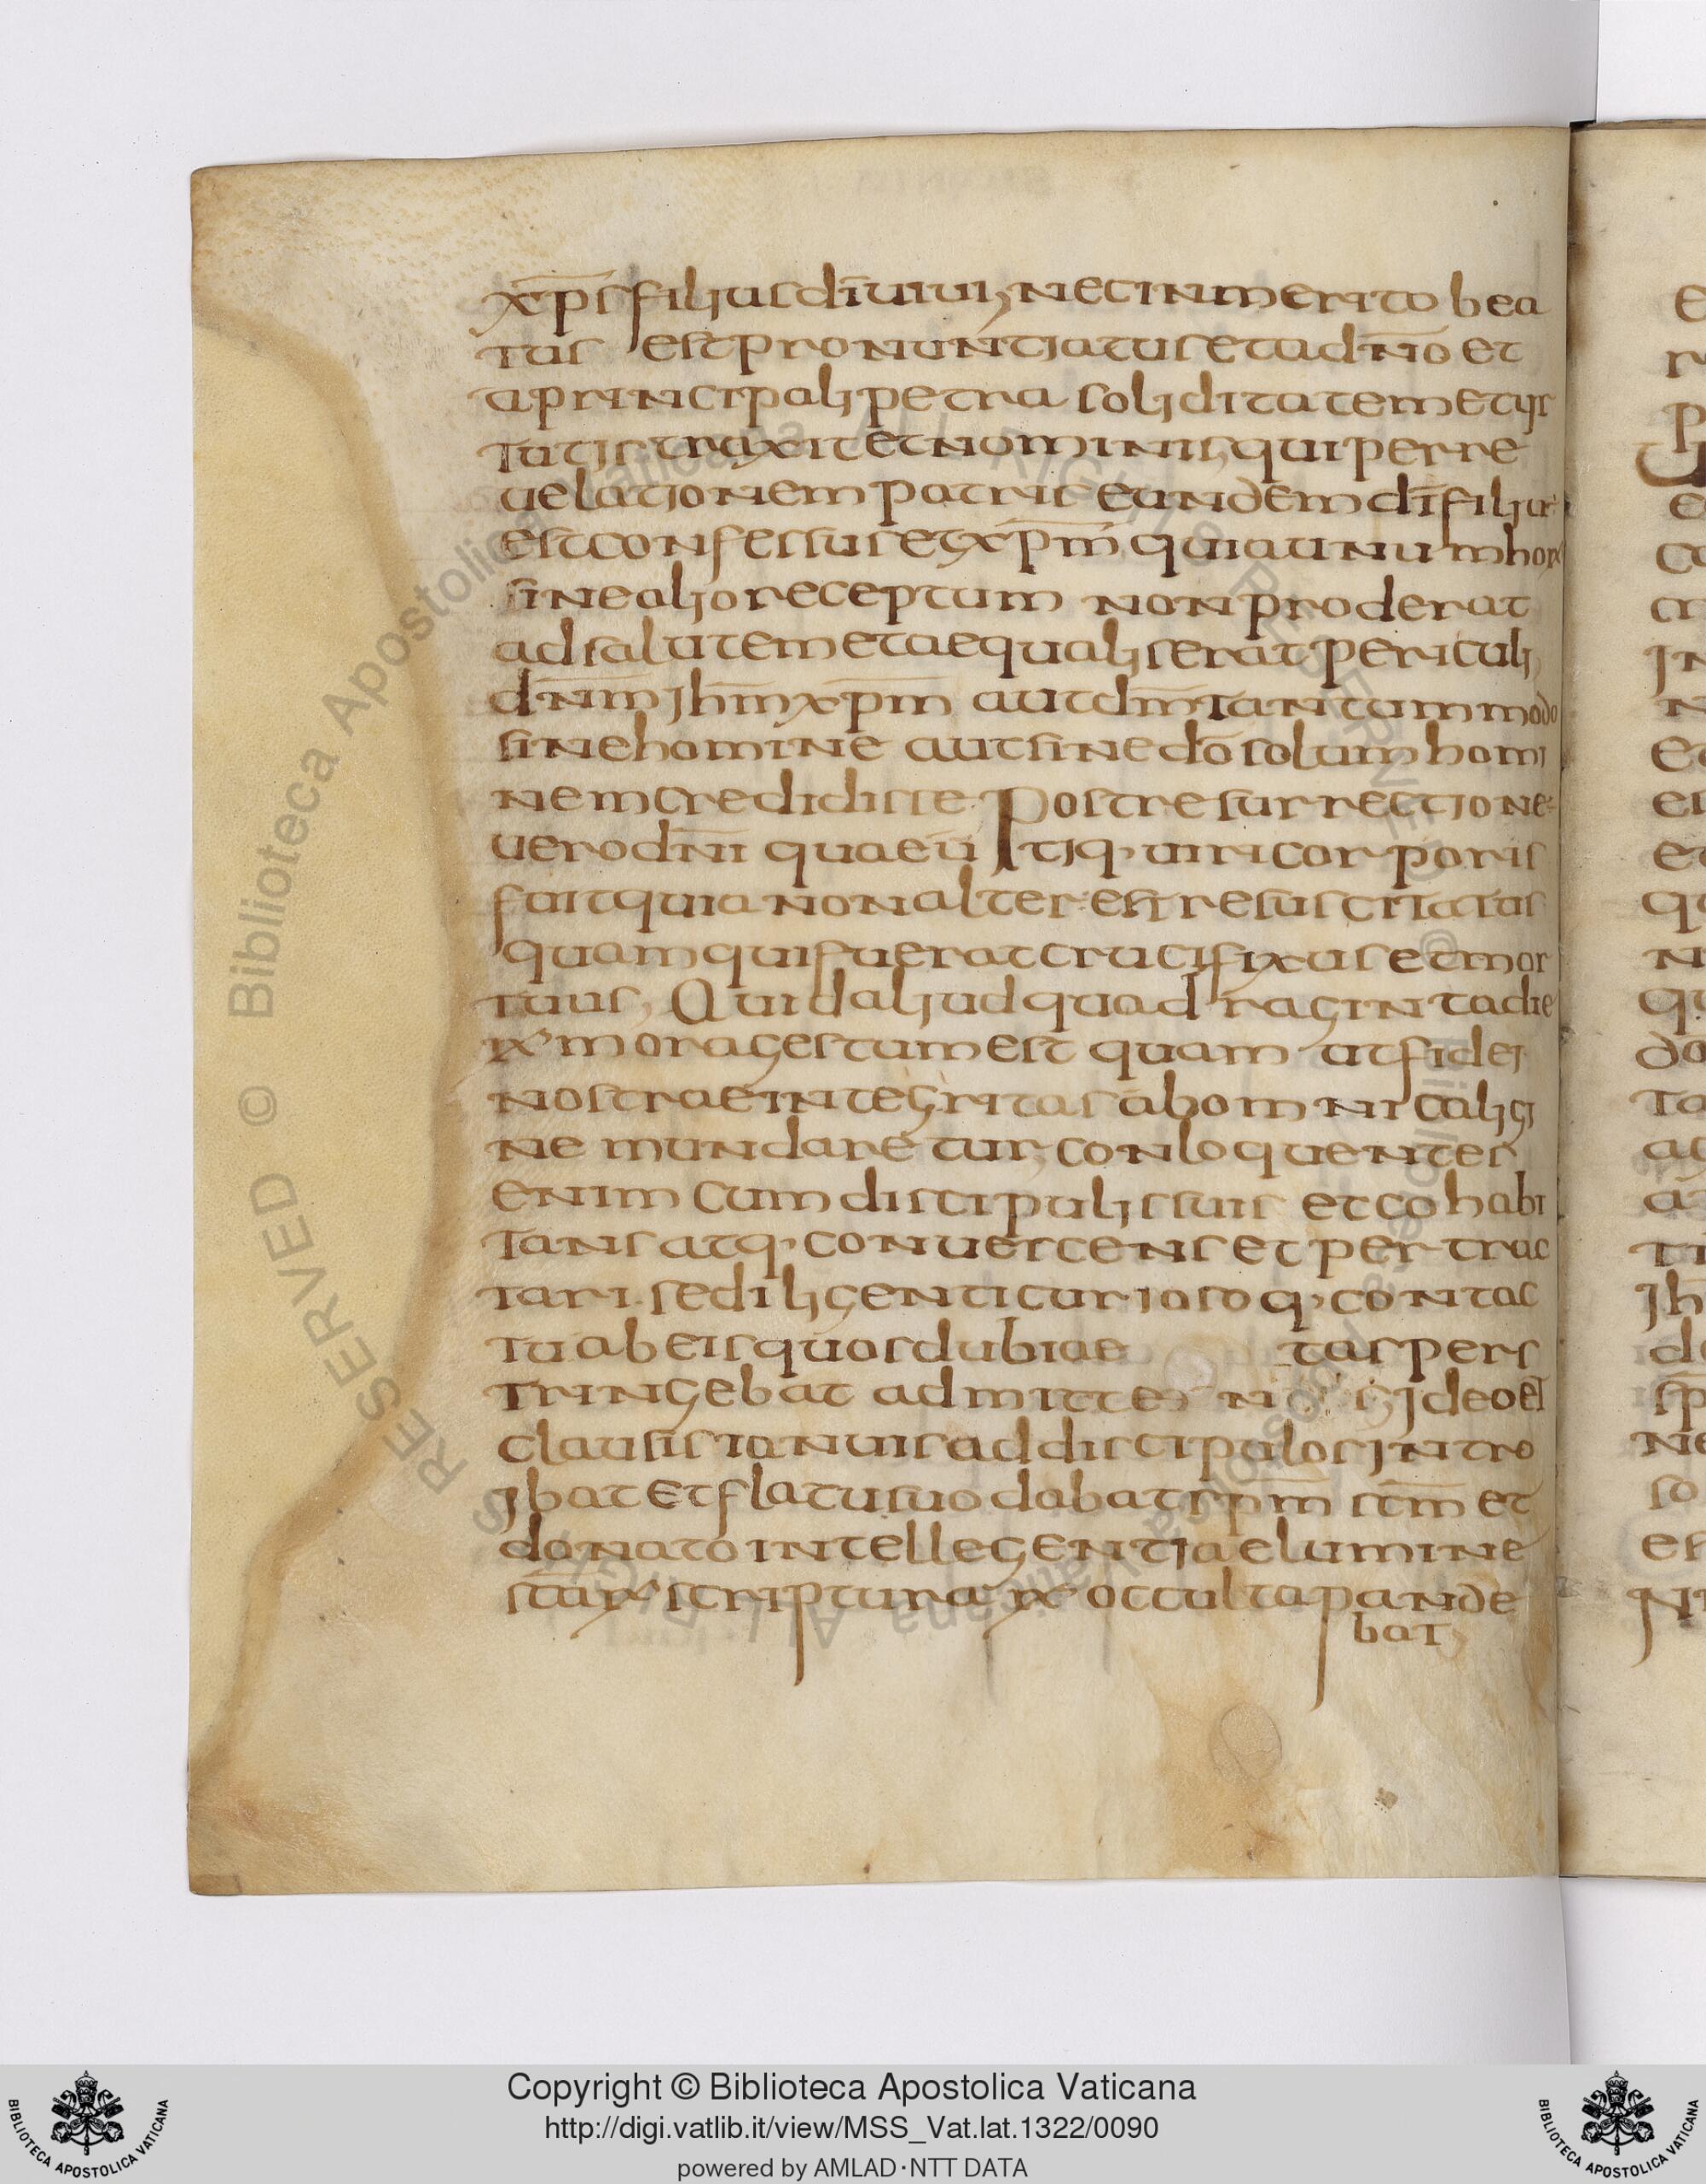 xp̅s filius di̅ uiui, nec inmerito bea
tus est pronuntiatus et a dn̅o et
a principali petra soliditatem et uir
tutis traxit et nominis, qui per re
uelationem patris eundem di̅ filiu̅
est confessus et xp̅m quia unum hor
sine alio receptum non proderat
ad salutem et aequalis erat periculi
dn̅m ih̅m xp̅m aut dm̅ tantummodo
sine homine aut sine do̅ solum homi
nem credidisse. Post resurrectione
uero dn̅i quae u̅tiq, ueri corporis
fuit quia non alter est resuscitatus
quam qui fuerat crucifixus et mor
tuus, Quid aliud quadraginta die
rx mora gestum est quam ut fidei
nostrae integritas ab omni caligi
ne mundaretur, conloquentes
enim cum discipulis suis et cohabi
tans atq, conuescens et pertrac
tari se diligenti curiosoq, contac
tu ab eis quos dubiae tas pers
tringebat admitte ideo et
clausis ianuis ad discipulos intro
ibat et flatu suo dabat sp̅m sc̅m et
donato intellegentiae lumine
sc̅arx scripturarx occulta pande
bat,
E
Copyright © Biblioteca Apostolica Vaticana
http://digi.vatlib.it/view/MSS_Vat.lat.1322/0090
powered by AMLAD·NTT DATA
BIBLIOTECA APOSTOLICA VATICANA
BIBLIOTECA APOSTOLICA VATICANA
© Biblioteca Apostolica Vaticana ALL RIGHTS RESERVED